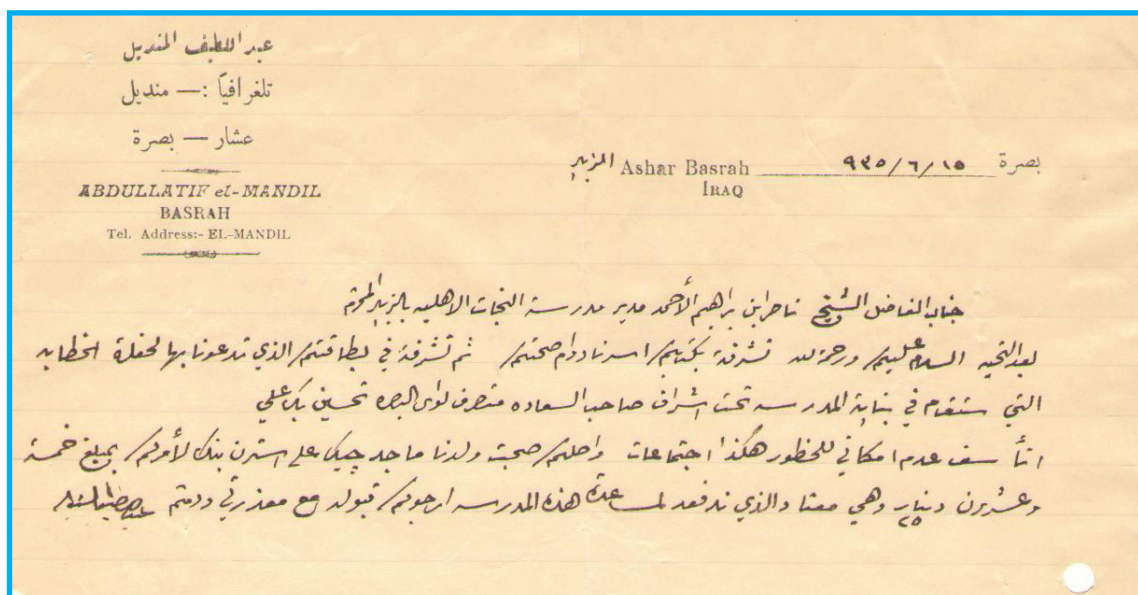 عبد اللطيف المنديل
تلغرافياً :— منديل
عشار — بصرة
ABDULLATIF el-MANDIL
BASRAH
Tel. Address:- EL-MANDIL
بصرة ١٥/٦/٩٣٥ Ashar Basrah الزبير
IRAQ
جناب الفاضل الشيخ ناصر ابن براهيم الأحمد مدير مدرسة النجات الاهليه بالزبير المحترم
بعد التحيه السلام عليكم ورحمة الله تشرفة بكتابكم اسرنا دوام صحتكم ثم تشرفة في بطاقتكم الذي تدعونا بها لحفلة الخطابه
التي ستقام في بناية المدرسه تحت اشراف صاحب السعاده متصرف لواى البصره تحسين بك علي
اتأسف عدم امكاني للحظور هكذا اجتماعات واصلكم صحبت ولدنا ماجد چيك على استرن بنك لأمركم بمبلغ خمسة
وعشرون دينار ٢٥ وهي معتادالذي ندفعه لمساعدة هذه المدرسه ارجوكم قبوله مع معذرتي ودمتم